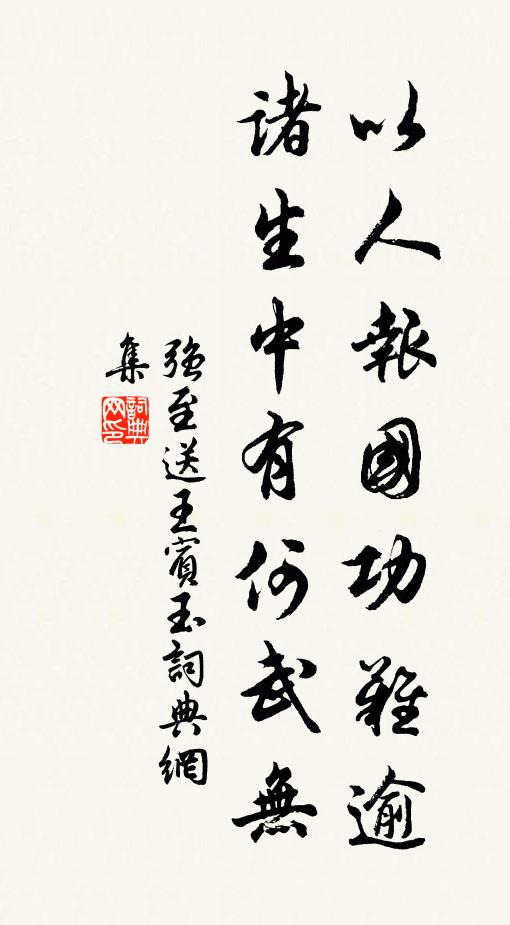 以人報國功難逾
諸生中有何武無
強至送王賓玉詞典網
集
詞典网印